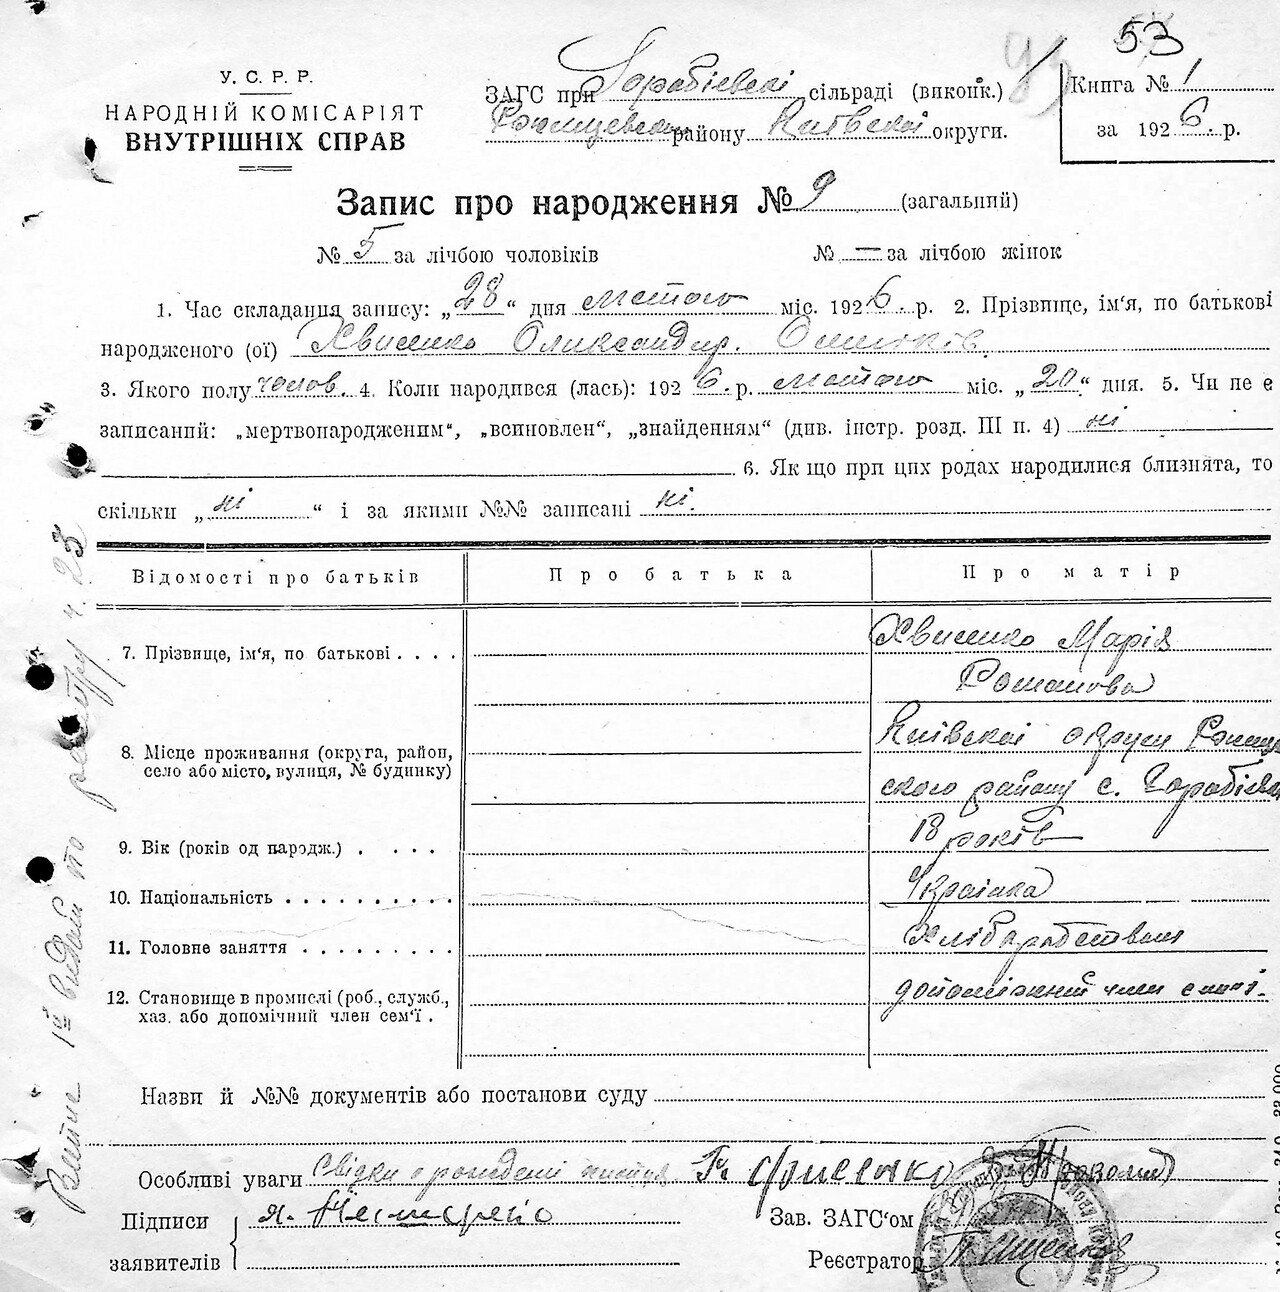 53
У. С. Р. Р.
НАРОДНІЙ КОМІСАРІЯТ
ВНУТРІШНІХ СПРАВ
ЗАГС при Горобієвскі сільраді (виконк.)
району Київскої округи.
Книга № 1
за 1926 р.
Запис про народження № 9 (загальний)
№ 5 за лічбою чоловіків № — за лічбою жінок
1. Час складання запису: „28“ дня лютого міс. 1926. р. 2. Прізвище, ім‘я, по батькові
народженого (ої) Хвисенко Олександир.
3. Якого полу чолов. 4. Коли народився (лась): 1926. р. лютого міс. „20“ дня. 5. Чи не є
записаний: „мертвонародженим“, „всиновлен“, „знайденням“ (див. інстр. розд. III п. 4) ні
6. Як що при цих родах народилися близнята, то
скільки „ні“ і за якими №№ записані ні.
Відомості про батьків Про батька Про матір
7. Прізвище, ім‘я, по батькові . . . . Хвисенко Марія
Романова
8. Місце проживання (округа, район,
село або місто, вулиця, № будинку)
Київскої округи
ского району с.
9. Вік (років од народж.) . . . . . 18 років
10. Національність . . . . . . . . . . Українка
11. Головне заняття . . . . . . . . . Хліборобство
12. Становище в промислі (роб., служб.,
хаз. або допомічний член сем‘ї .
допоміжний член сем'ї.
Назви й №№ документів або постанови суду
Особливі уваги Свідки
Підписи
заявителів
Зав. ЗАГС‘ом
Реєстратор